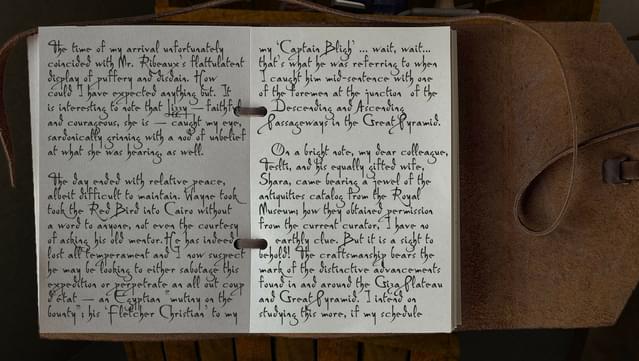 The time of my arrival unfortunately
coincided with Mr. Ribeaux's flattulatent
display of puffery and disdain. How
could I have expected anything but. It
is interesting to note that Lizzy — faithful
and courageous, she is — caught my eye,
sardonically grinning with a nod of unbelief
at what she was hearing, as well.
The day ended with relative peace,
albeit difficult to maintain. Wayne took
took the Red Bird into Cairo without
a word to anyone, not even the courtesy
of asking his old mentor. He has indeed
lost all temperament and I now suspect
he may be looking to either sabotage this
expedition or perpetrate an all out coup
d'etat — an Egyptian "mutiny on the
bounty"; his 'Fletcher Christian' to my
my 'Captain Bligh' ... wait, wait...
that's what he was referring to when
I caught him mid-sentence with one
of the foremen at the junction of the
Descending and Ascending
Passageways in the Great Pyramid.
On a bright note, my dear colleague,
and his equally gifted wife,
Shara, came bearing a jewel of the
antiquities catalog from the Royal
Museum; how they obtained permission
from the current curator, I have no
earthly clue. But it is a sight to
behold! The craftsmanship bears the
mark of the distinctive advancements
found in and around the Giza Plateau
and Great Pyramid. I intend on
studying this more, if my schedule